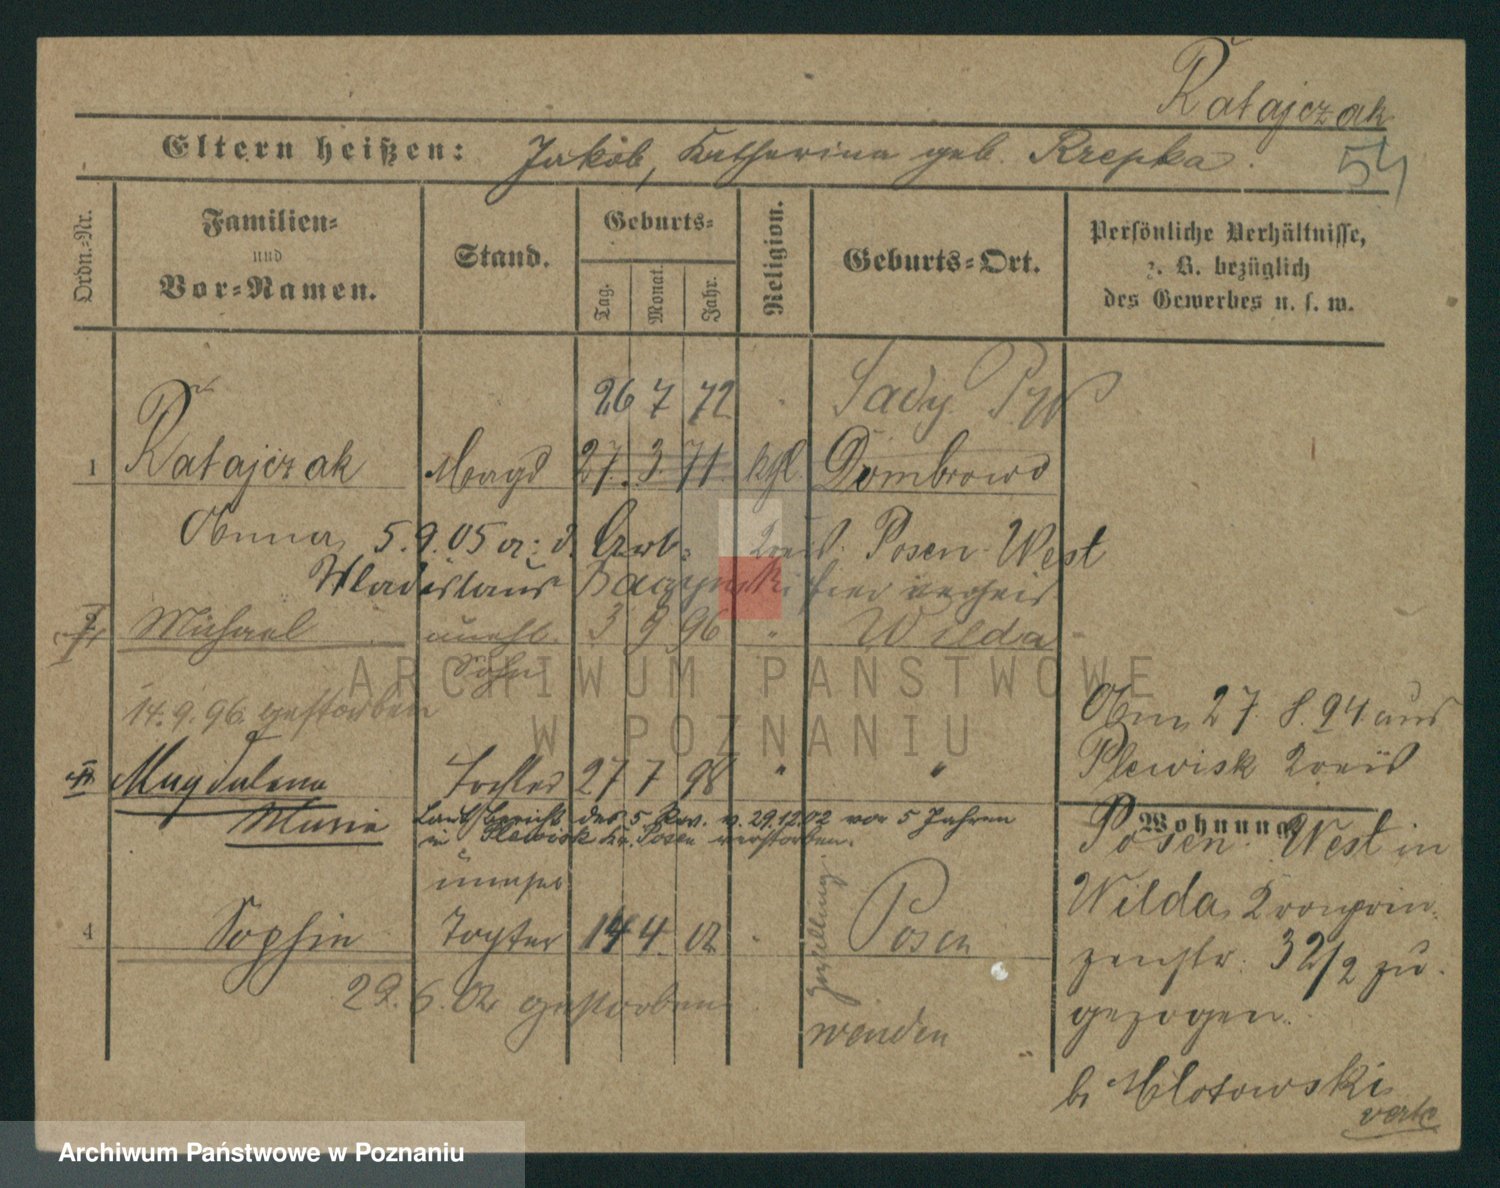 Ratajczak
Eltern heißen: Jakob, Katharina geb. Krzepka.
54
Ordn.-Nr.
Familien-
und
Vor-Namen.
Stand.
Geburts-
Tag. Monat. Jahr.
Religion.
Geburts-Ort.
Persönliche Verhältnisse,
z. B. bezüglich
des Gewerbes u. s. w.
26 7 72 Sady
1 Ratajczak Magd 27. 3. 71. kgl. Dombrowo
5.9.05 Arb. Kreis Posen West
Wladislaus hier
2 Michael unehl. 3 9 96 " Wilda
Sohn
14.9.96. gestorben
Magdalena Tochter 27 7 98 " "
Maria Laut Bericht des 5. Rev. v. 29.12.02 vor 5 Jahren
in Plewisk Kr. Posen verstorben.
unehel
4 Sophie Tochter 14 4. 02 Posen
29. 6. 02 gestorben
wenden
27. 8. 94 aus
Plewisk Kreis
Wohnung
Posen West in
Wilda, Kronprin-
zenstr. 32/2 zu-
gezogen.
b. Mlotowski
verte
ARCHIWUM PAŃSTWOWE
W POZNANIU
Archiwum Państwowe w Poznaniu